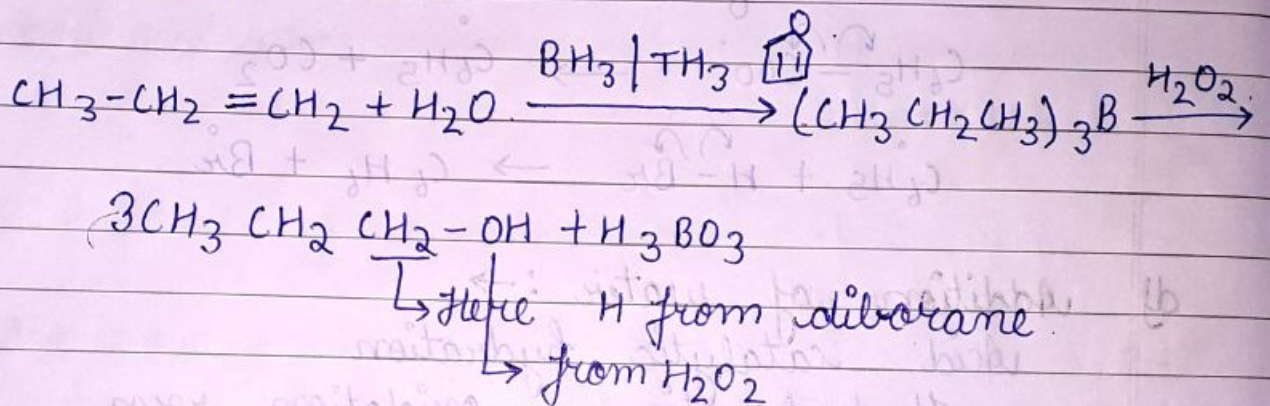 BH3/TH3
CH3-CH2=CH2 + H2O → (CH3 CH2 CH3)3B H2O2 →
3CH3 CH2 CH2-OH + H3BO3
↳ Here H from diborane
↳ from H2O2